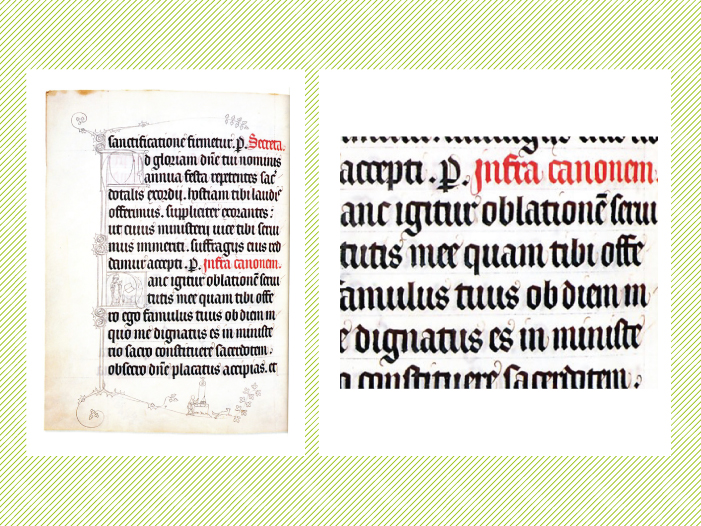 sanctificatione firmetur. P. Secreta.
d gloriam dñe tui nominis
annua festa repetentes sac̄
dotalis exordii. hostiam tibi laudis
offerimus. suppliciter exorantes:
ut cuius ministerii uice tibi serui
mus immeriti. suffragiis eius red
damur accepti. P. Infra canonem.
anc igitur oblationē serui
tutis mee quam tibi offe
ro ego famulus tuus ob diem in
quo me dignatus es in ministe
rio sacro constituere sacerdotem.
obsecro dñe placatus accipias. et
accepti. P. Infra canonem.
anc igitur oblationē serui
tutis mee quam tibi offe
famulus tuus ob diem in
e dignatus es in ministe
o constituere sacerdotem.